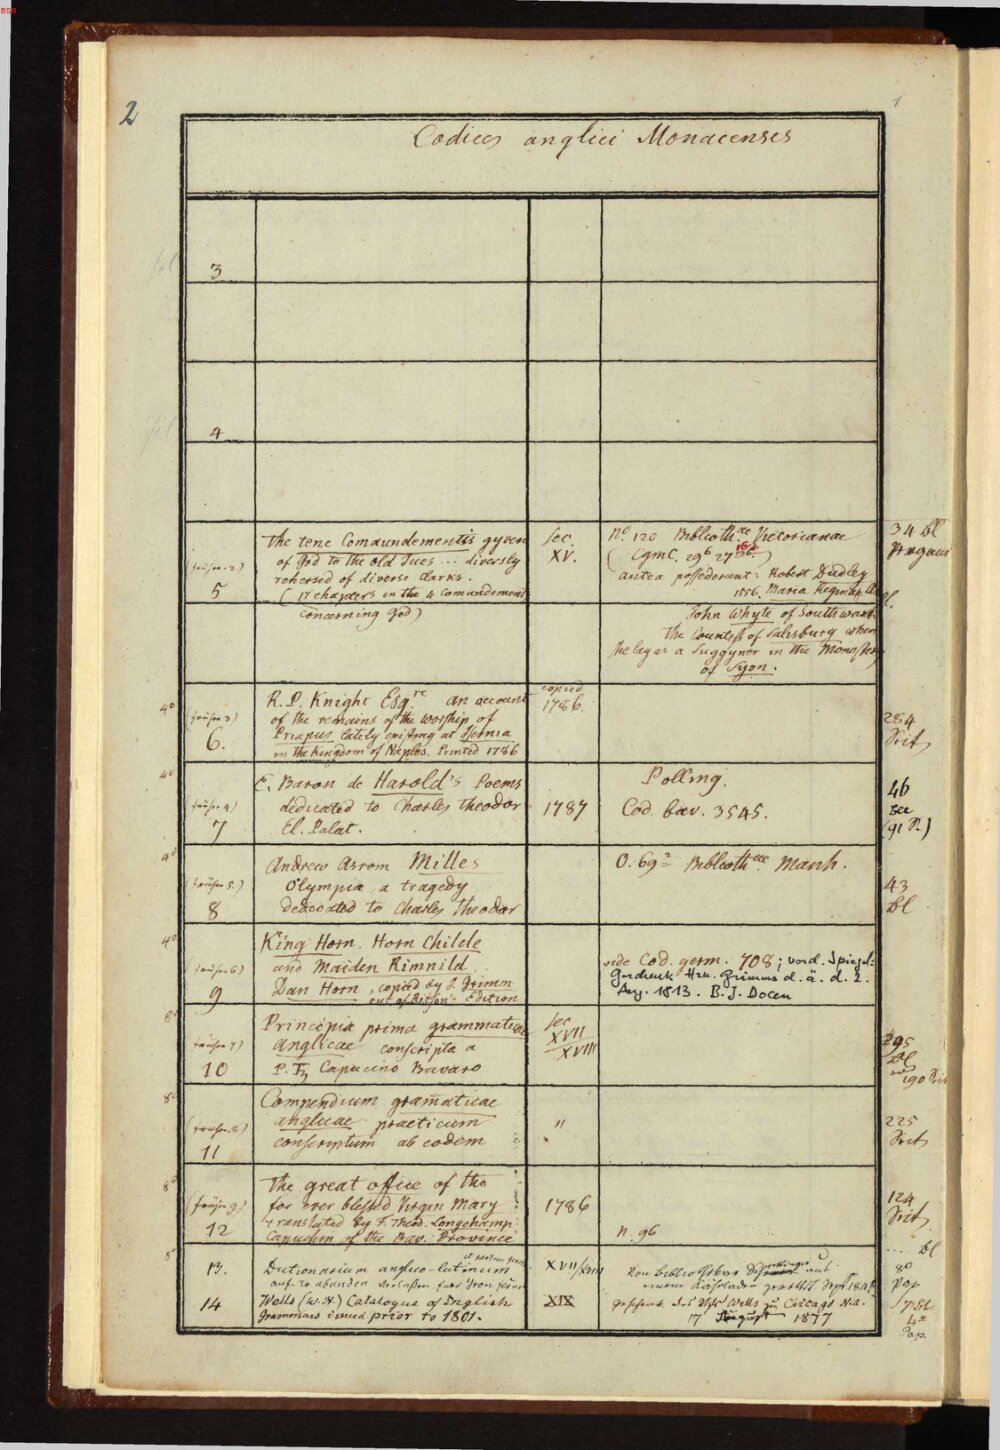 BSB
2
1
Codices anglici Monacenses
3
4
The tene Comaundementis gyven
of god to the old Jues ... diversly
rehersed of diverse clarks.
(17 chapters on the 4 Comandement
concerning god)
(früher 2)
5
sec.
XV.
No 120 Biblioth.ae Victorianae
(Cgm C. 29b 27
antea possederant: Robert Dudley
1556. Maria Regina
John Whyte of Southwark
the Countess of Salisbury when
she lay as a Suggyner in the Monastery
of Syon.
34 bl
Pergam
4o
(früher 3)
6.
R. P. Knight Esq.re an account
of the remains of the worship of
Priapus lately existing at Isernia
in the Kingdom of Naples. Printed 1786
copied
1786.
284
Seit
4o
(früher 4)
7
E. Baron de Harold's Poems
dedicated to Charles Theodor
El. Palat.
1787
Polling.
Cod. bav. 3545.
46
(91 S.)
4o
(früher 5.)
8
Andrew Asrom Milles
Olympia, a tragedy
deacated to Charles Theodor
O. 69 Biblioth.ae Manh.
43
bl
4o
(früher 6)
9
King Horn. Horn Childe
and Maiden Rimnild
Dan Horn, copied by J. Grimm
out of Ritson's Edition
vide Cod. germ. 708; vord. Spiegel:
Geschenk Hrn. Grimms d. ä. d. 2.
Aug. 1813. B. J. Docen
8o
(früher 7)
10
Principia prima grammaticae
anglicae conscripta a
P. F. Capucino Bavaro
sec
XVII
XVIII
295
bl
190 Seit
8o
(früher 8)
11
Compendium gramaticae
anglicae practicum
conscriptum ab eodem
"
225
Seit
8o
(früher 9)
12
The great office of the
for ever blessed Virgin Mary
translated by F. Theod. Longchamp
Capuchin of the Bav. Province
1786
n. 96
124
Seit
13.
Dictionarium anglico-latinum
XVII/XVIII
bl
8o
Pap
14
Wells (W. H.) Catalogue of English
Grammars issued prior to 1801.
XIX
Geschenk des Wells zu Chicago N.A.
17 August 1877
4o
Pap.